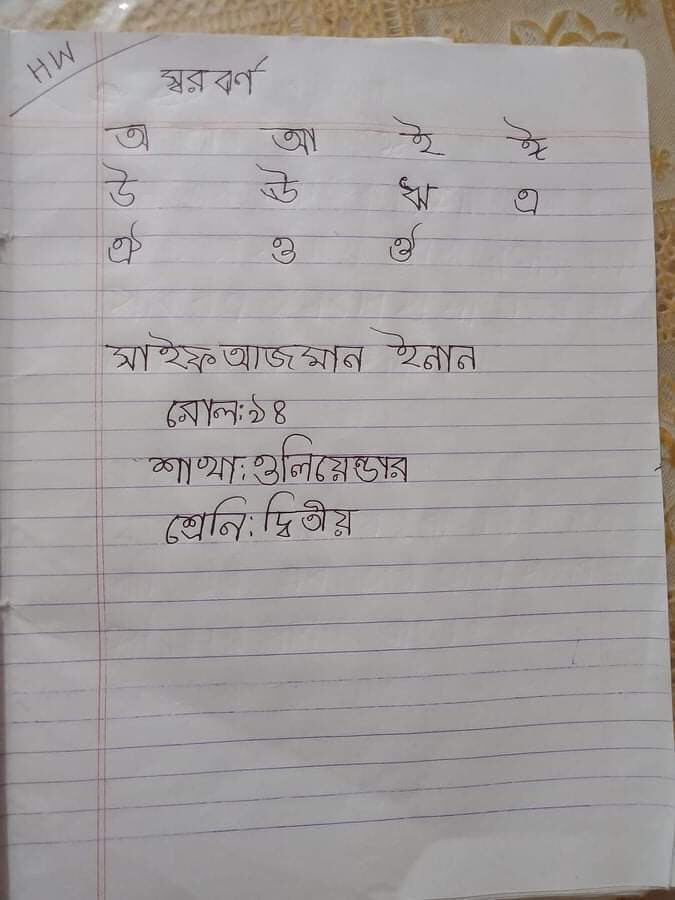 HW
স্বরবর্ণ
অ আ ই ঈ
উ ঊ ঋ এ
ঐ ও ঔ
সাইফ আজমান ইনান
রোল:১৪
শাখা:ওলিয়েন্ডার
শ্রেনি:দ্বিতীয়